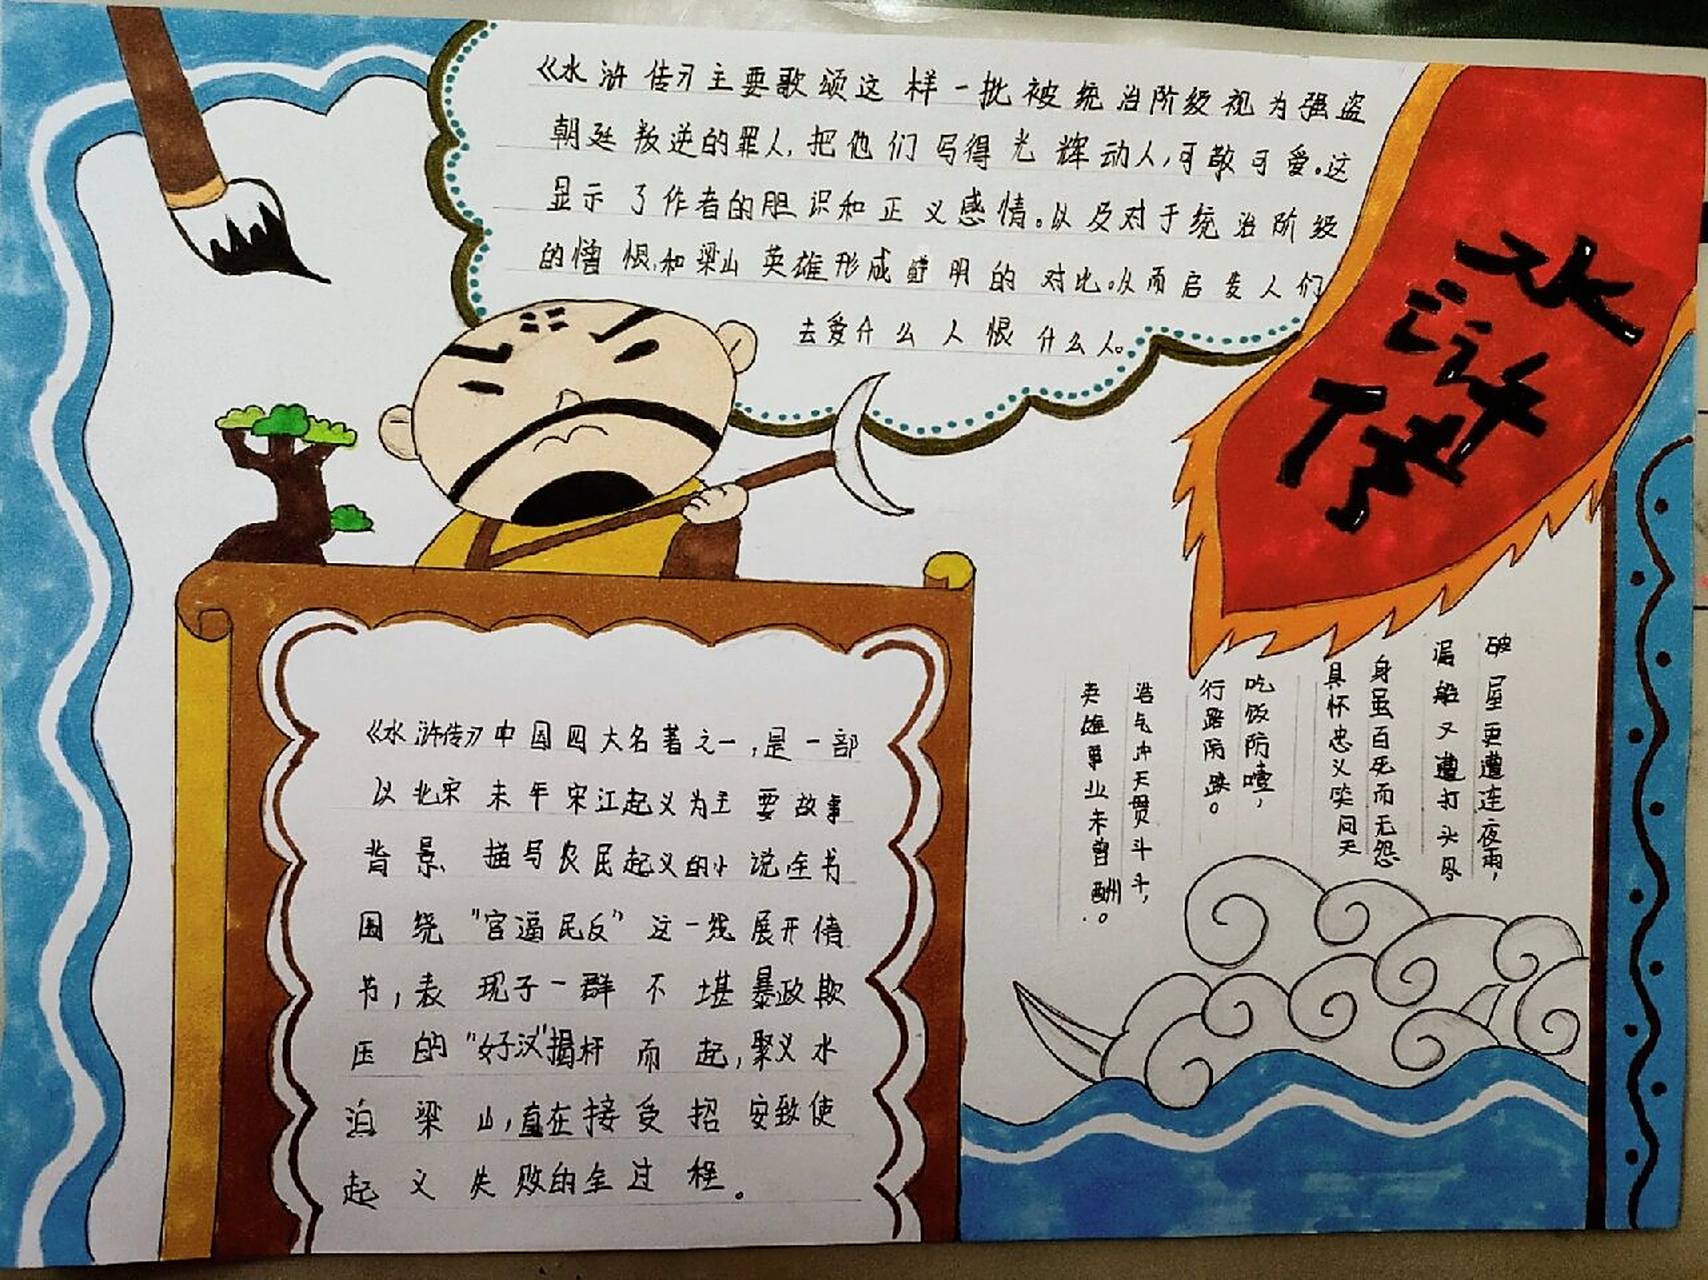 《水浒传》主要歌颂这样一批被统治阶级视为强盗
朝廷叛逆的罪人,把他们写得光辉动人,可敬可爱。这
显示了作者的胆识和正义感情。以及对于统治阶级
的憎恨,和梁山英雄形成鲜明的对比。从而启发人们
去爱什么人恨什么人。
水浒传
《水浒传》中国四大名著之一,是一部
以北宋末年宋江起义为主要故事
背景、描写农民起义的小说全书
围绕"官逼民反"这一线展开情
节,表现了一群不堪暴政欺
压的"好汉"揭杆而起,聚义水
泊梁山,直在接受招安致使
起义失败的全过程。
破屋更遭连夜雨,
漏船又遭打头风
身虽百死而无怨
具怀忠义笑问天
吃饭防噎,
行路防跌。
浩气冲天贯斗斗,
英雄事业未曾酬。